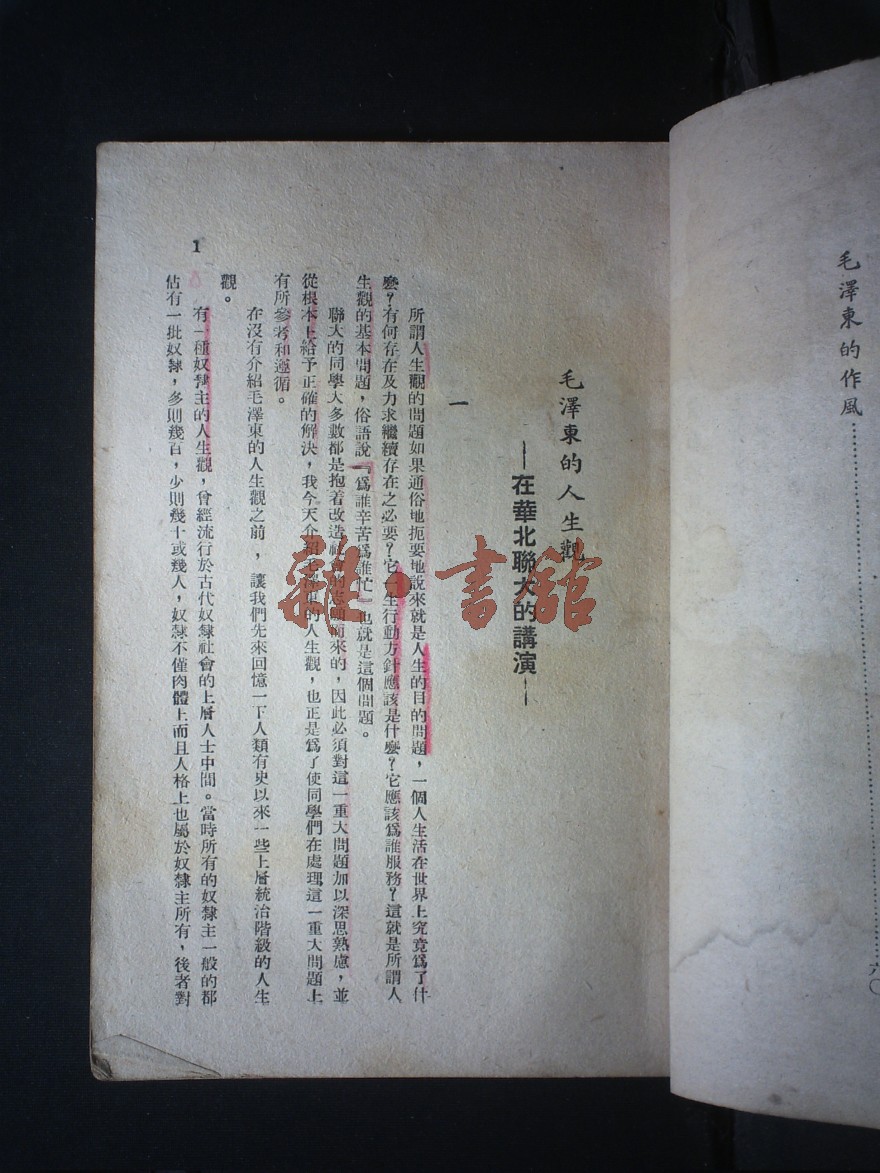 毛澤東的作風……………六〇
毛澤東的人生觀
——在華北聯大的講演——
一
所謂人生觀的問題如果通俗地扼要地說來就是人生的目的問題，一個人生活在世界上究竟爲了什
麼？有何存在及力求繼續存在之必要？它一生行動方針應該是什麼？它應該爲誰服務？這就是所謂人
生觀的基本問題，俗語說『爲誰辛苦爲誰忙』也就是這個問題。
聯大的同學大多數都是抱着改造社會的志願而來的，因此必須對這一重大問題加以深思熟慮，並
從根本上給予正確的解決，我今天介紹毛澤東的人生觀，也正是爲了使同學們在處理這一重大問題上
有所參考和遵循。
在沒有介紹毛澤東的人生觀之前，讓我們先來回憶一下人類有史以來一些上層統治階級的人生
觀。
有一種奴隸主的人生觀，曾經流行於古代奴隸社會的上層人士中間。當時所有的奴隸主一般的都
佔有一批奴隸，多則幾百，少則幾十或幾人，奴隸不僅肉體上而且人格上也屬於奴隸主所有，後者對
1
雜·書館